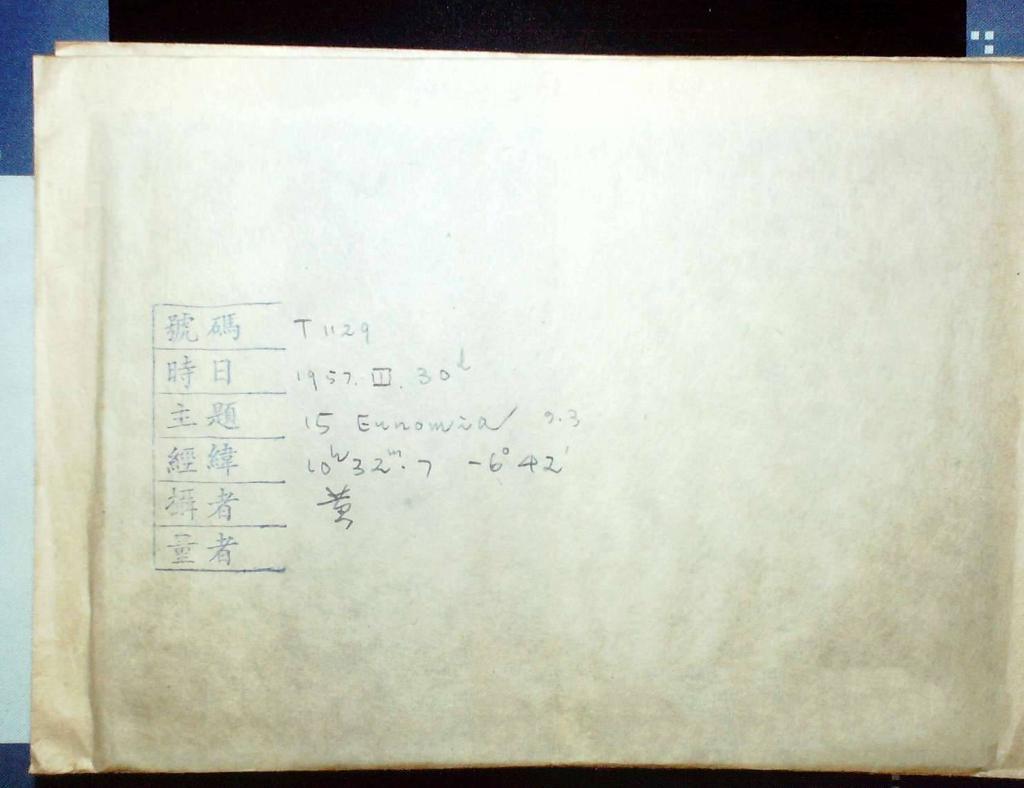 號碼 T 1129
時日 1957. III. 30d
主題 15 Eunomia 9.3
經緯 10h 32m.7 -6° 42'
攝者 黃
量者